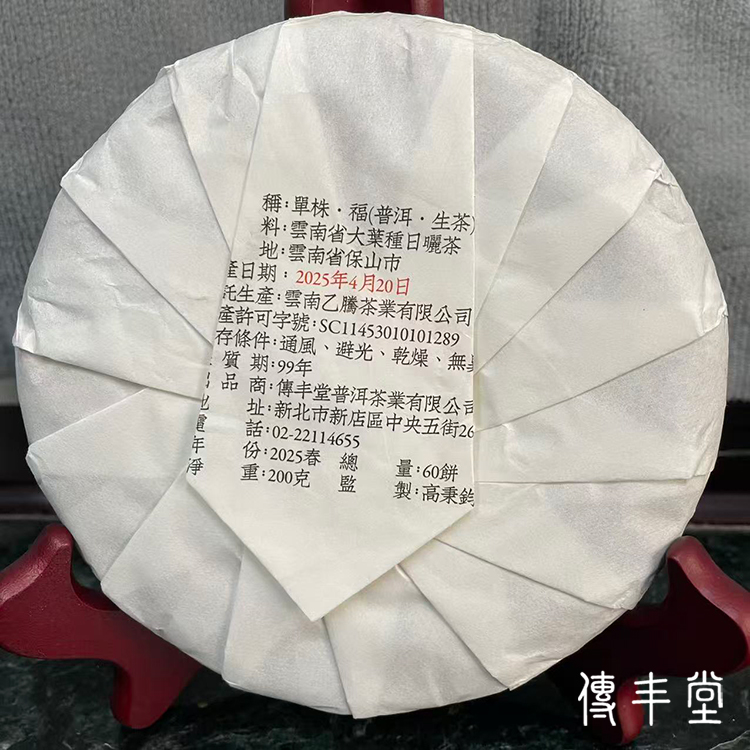 稱:單株·福(普洱·生茶)
料:雲南省大葉種日曬茶
地:雲南省保山市
產日期:2025年4月20日
託生產:雲南乙騰茶業有限公司
產許可字號:SC11453010101289
存條件:通風、避光、乾燥、無
質期:99年
品商:傳丰堂普洱茶業有限公司
址:新北市新店區中央五街26
話:02-22114655
年份:2025春 總量:60餅
淨重:200克 監製:高秉鈞
傳丰堂